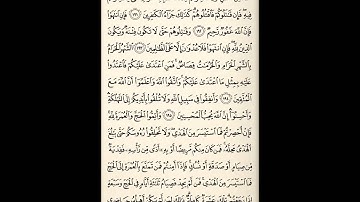 فِيهِ فَإِن قَٰتَلُوكُمْ فَٱقْتُلُوهُمْ كَذَٰلِكَ جَزَآءُ ٱلْكَٰفِرِينَ ١٩١ فَإِنِ ٱنتَهَوْا۟
فَإِنَّ ٱللَّهَ غَفُورٌ رَّحِيمٌ ١٩٢ وَقَٰتِلُوهُمْ حَتَّىٰ لَا تَكُونَ فِتْنَةٌ وَيَكُونَ
ٱلدِّينُ لِلَّهِ فَإِنِ ٱنتَهَوْا۟ فَلَا عُدْوَٰنَ إِلَّا عَلَى ٱلظَّٰلِمِينَ ١٩٣ ٱلشَّهْرُ ٱلْحَرَامُ
بِٱلشَّهْرِ ٱلْحَرَامِ وَٱلْحُرُمَٰتُ قِصَاصٌ فَمَنِ ٱعْتَدَىٰ عَلَيْكُمْ فَٱعْتَدُوا۟
عَلَيْهِ بِمِثْلِ مَا ٱعْتَدَىٰ عَلَيْكُمْ وَٱتَّقُوا۟ ٱللَّهَ وَٱعْلَمُوٓا۟ أَنَّ ٱللَّهَ مَعَ
ٱلْمُتَّقِينَ ١٩٤ وَأَنفِقُوا۟ فِى سَبِيلِ ٱللَّهِ وَلَا تُلْقُوا۟ بِأَيْدِيكُمْ إِلَى ٱلتَّهْلُكَةِ
وَأَحْسِنُوٓا۟ إِنَّ ٱللَّهَ يُحِبُّ ٱلْمُحْسِنِينَ ١٩٥ وَأَتِمُّوا۟ ٱلْحَجَّ وَٱلْعُمْرَةَ لِلَّهِ
فَإِنْ أُحْصِرْتُمْ فَمَا ٱسْتَيْسَرَ مِنَ ٱلْهَدْىِ وَلَا تَحْلِقُوا۟ رُءُوسَكُمْ حَتَّىٰ يَبْلُغَ
ٱلْهَدْىُ مَحِلَّهُۥ فَمَن كَانَ مِنكُم مَّرِيضًا أَوْ بِهِۦٓ أَذًى مِّن رَّأْسِهِۦ فَفِدْيَةٌ
مِّن صِيَامٍ أَوْ صَدَقَةٍ أَوْ نُسُكٍ فَإِذَآ أَمِنتُمْ فَمَن تَمَتَّعَ بِٱلْعُمْرَةِ إِلَى ٱلْحَجِّ
فَمَا ٱسْتَيْسَرَ مِنَ ٱلْهَدْىِ فَمَن لَّمْ يَجِدْ فَصِيَامُ ثَلَٰثَةِ أَيَّامٍ فِى ٱلْحَجِّ وَسَبْعَةٍ
إِذَا رَجَعْتُمْ تِلْكَ عَشَرَةٌ كَامِلَةٌ ذَٰلِكَ لِمَن لَّمْ يَكُنْ أَهْلُهُۥ حَاضِرِى